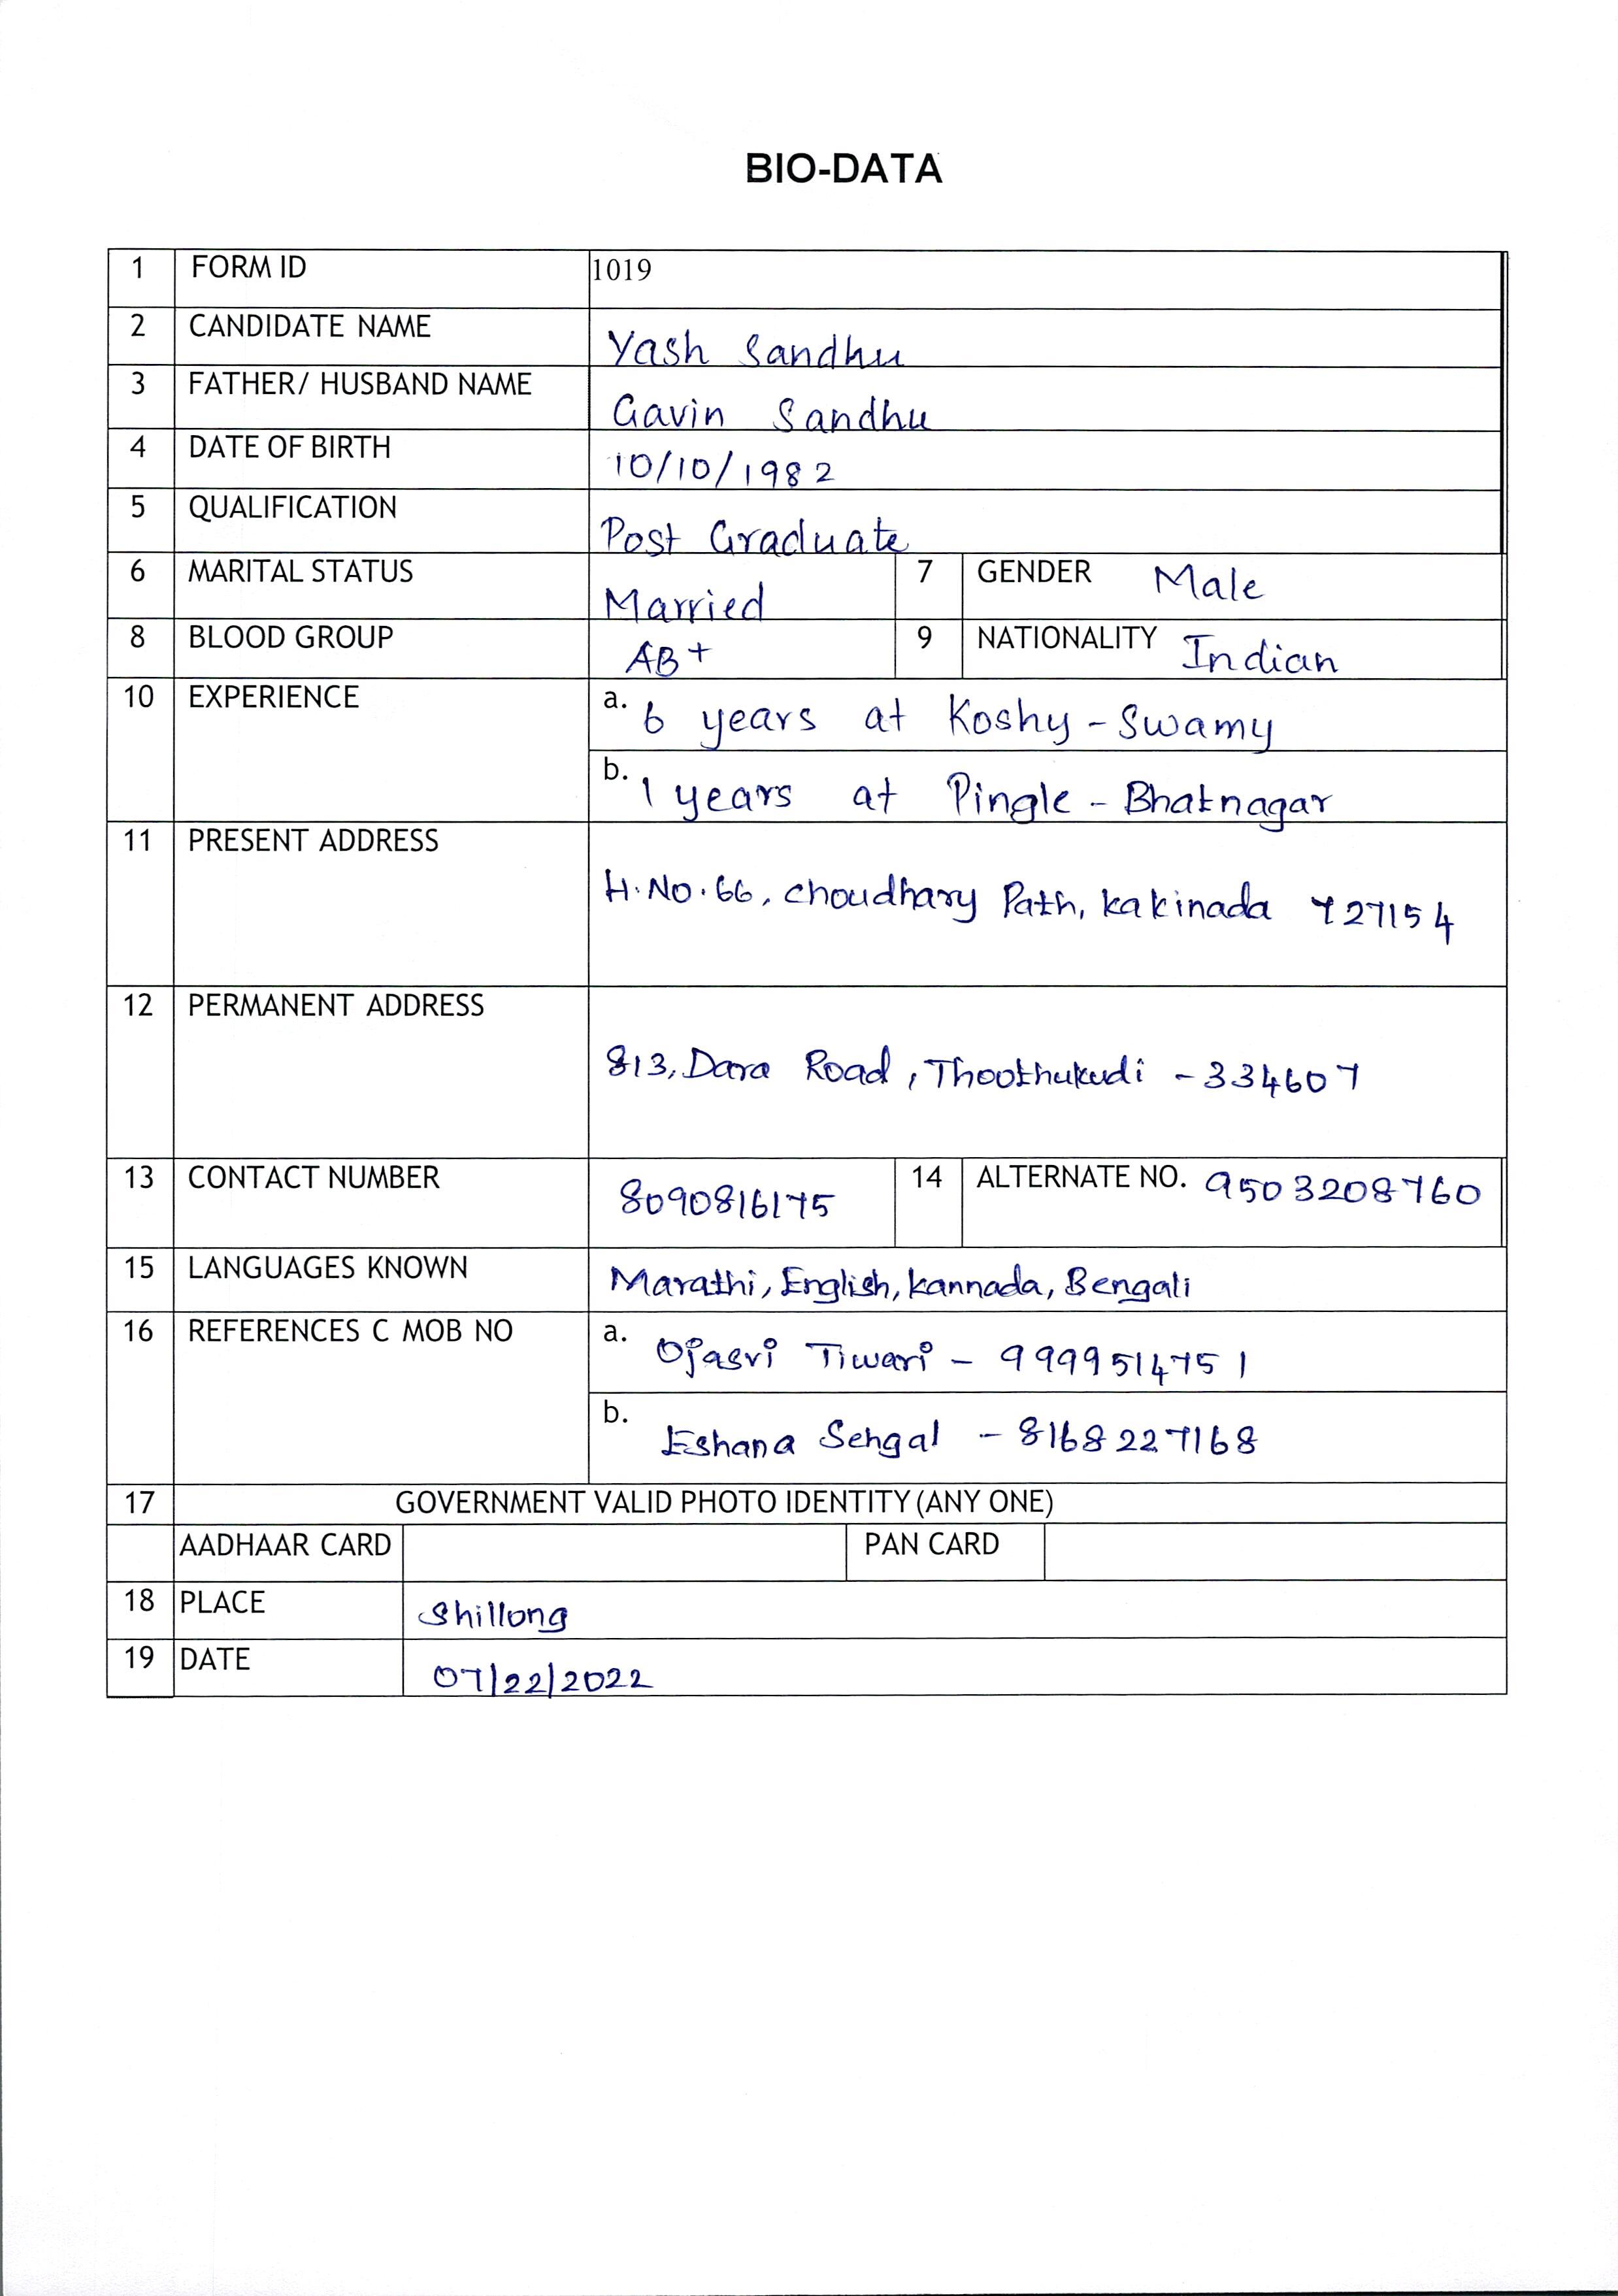 BIO-DATA
1 FORM ID 1019
2 CANDIDATE NAME Yash Sandhu
3 FATHER/ HUSBAND NAME Gavin Sandhu
4 DATE OF BIRTH 10/10/1982
5 QUALIFICATION Post Graduate
6 MARITAL STATUS Married 7 GENDER Male
8 BLOOD GROUP AB+ 9 NATIONALITY Indian
10 EXPERIENCE a. 6 years at Koshy-Swamy
b. 1 years at Pingle-Bhatnagar
11 PRESENT ADDRESS H.No.66, Choudhary Path, Kakinada 727154
12 PERMANENT ADDRESS 813, Dara Road, Thoothukudi - 334607
13 CONTACT NUMBER 8090816175 14 ALTERNATE NO. 9503208760
15 LANGUAGES KNOWN Marathi, English, Kannada, Bengali
16 REFERENCES C MOB NO a. Ojasvi Tiwari - 9999514751
b. Eshana Sehgal - 8168227168
17 GOVERNMENT VALID PHOTO IDENTITY (ANY ONE)
AADHAAR CARD PAN CARD
18 PLACE Shillong
19 DATE 07/22/2022